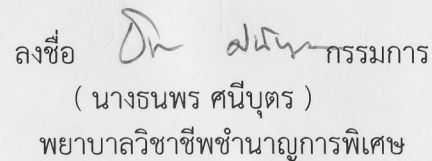 ลงชื่อ กรรมการ
( นางธนพร ศนีบุตร )
พยาบาลวิชาชีพชำนาญการพิเศษ